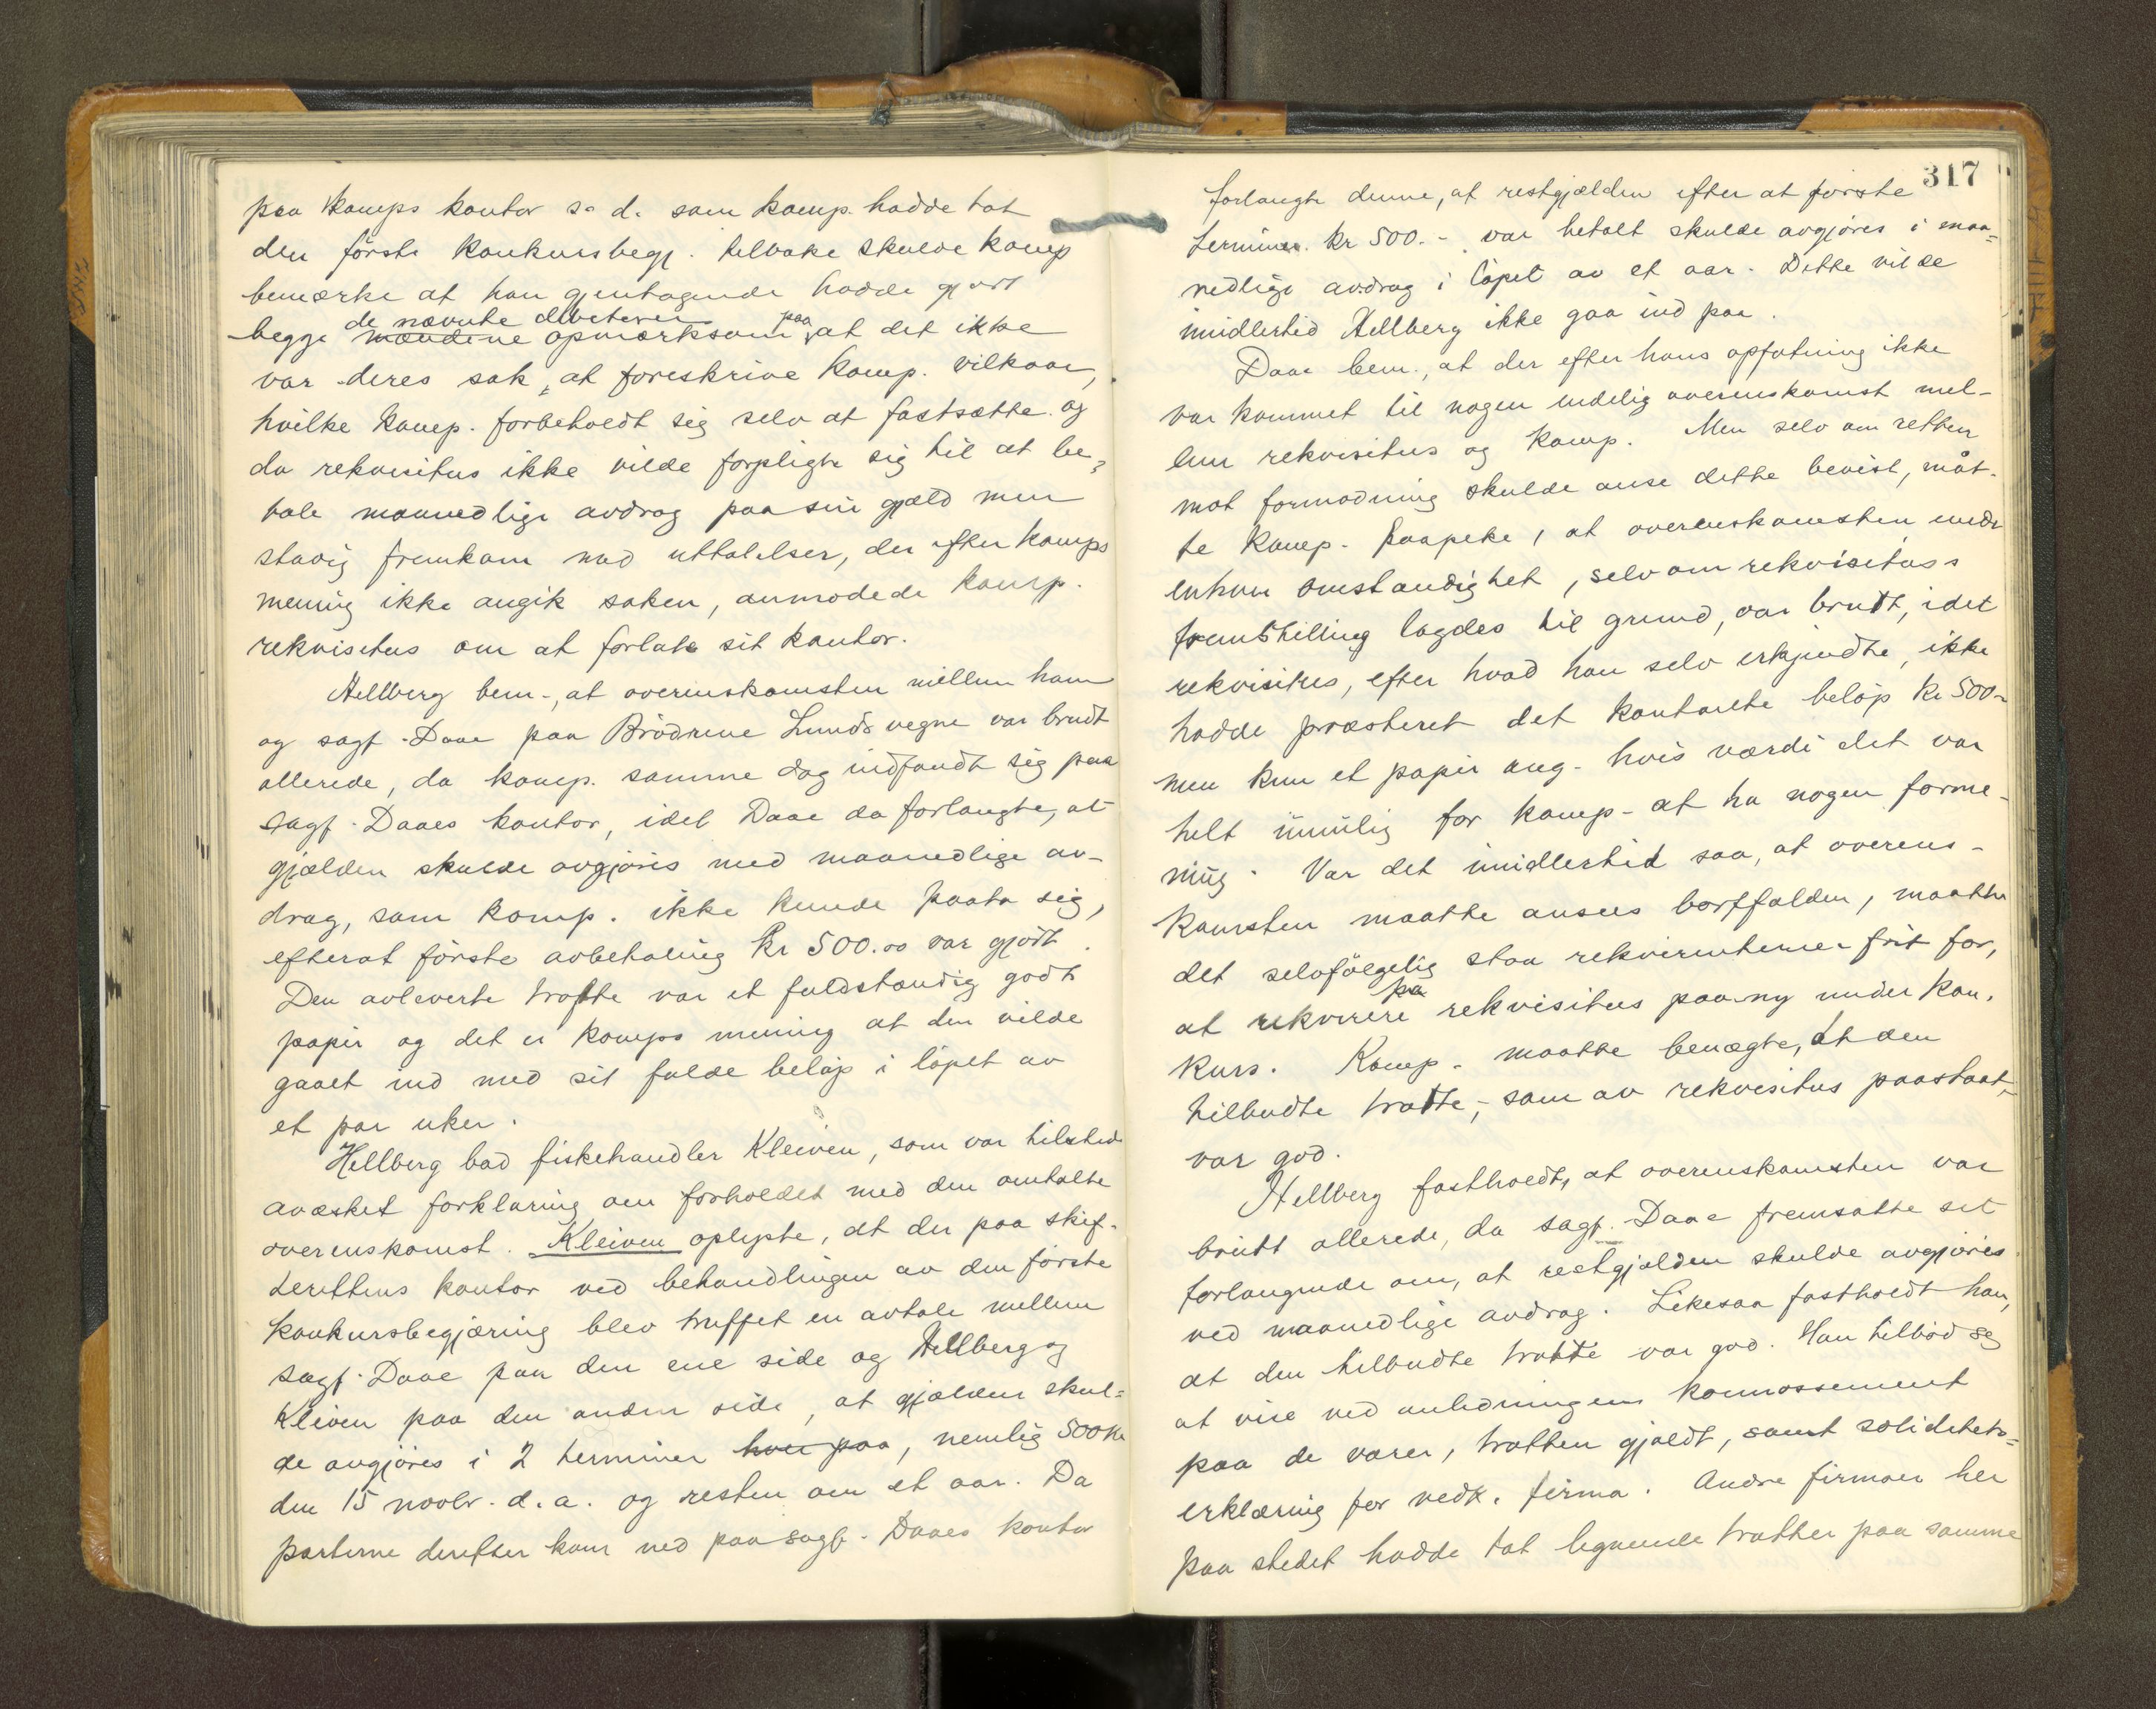 paa komps kontor s. d. som komp. hadde tat
den første konkursbegj. tilbake skulde komp
bemerke at han gjentagende hadde gjort
de nævnte
begge mændene opmerksom paa at det ikke
var deres sak, at foreskrive komp. vilkaar,
hvilke komp. forbeholdt sig selv at fastsætte og
da rekvisitus ikke vilde forpligte sig til at be=
tale maanedlige avdrag paa sin gjæld men
stadig fremkom med uttalelser, der efter komps
mening ikke angik saken, anmodede komp.
rekvisitus om at forlate sit kontor.
Hellberg bem., at overenskomsten mellem ham
og sagf. Daae paa Brødrene Lunds vegne var brudt
allerede, da komp. samme dag indfandt sig paa
sagf. Daaes kontor, idet Daae da forlangte, at
gjælden skulde avgjøres med maanedlige av-
drag, som komp. ikke kunde paata sig,
efterat første avbetaling kr 500.00 var gjort.
Den avleverte tratte var et fuldstændig godt
papir og det er komps mening at den vilde
gaaet ind med sit fulde beløp i løpet av
et par uker.
Hellberg bad fiskehandler Kleiven, som var tilstede
avæsket forklaring om forholdet med den omtalte
overenskomst. Kleiven oplyste, at der paa skif-
terettens kontor ved behandlingen av den første
konkursbegjæring blev truffet en avtale mellem
sagf. Daae paa den ene side og Hellberg og
Kleiven paa den anden side, at gjælden skul=
de avgjøres i 2 terminer hver paa, nemlig 500 kr
den 15 novbr. d. a. og resten om et aar. Da
parterne derefter kom ned paa sagf. Daaes kontor
317
forlangte denne, at restgjælden efter at første
termin kr 500.- var betalt skulde avgjøres i maa=
nedlige avdrag i løpet av et aar. Dette vilde
imidlertid Hellberg ikke gaa ind paa.
Daae bem., at der efter hans opfatning ikke
var kommet til nogen endelig overenskomst mel-
lem rekvisitus og komp. Men selv om retten
mot formodning skulde anse dette bevist, måt-
te komp. paapeke, at overenskomsten under
enhver omstændighet, selv om rekvisitus's
fremstilling lagdes til grund, var brutt, idet
rekvisitus, efter hvad han selv erkjendte, ikke
hadde præsteret det kontante beløp kr 500-
men kun et papir ang. hvis værdi det var
helt umulig for komp. at ha nogen forme-
ning. Var det imidlertid saa, at overens-
komsten maatte ansees bortfalden, maatte
det selvfølgelig staa rekvirenterne frit for,
at rekvirere rekvisitus paa ny under kon-
kurs. Komp. maatte benægte, at den
tilbudte tratte, som av rekvisitus paastaat,
var god.
Hellberg fastholdt, at overenskomsten var
brutt allerede, da sagf. Daae fremsatte sit
forlangende om, at restgjælden skulde avgjøres
ved maanedlige avdrag. Likesaa fastholdt han,
at den tilbudte tratte var god. Han tilbød sig
at vise ved anledningen konnossement
paa de varer, tratten gjaldt, samt soliditets=
erklæring for vedk. firma. Andre firmaer her
paa stedet hadde tat lignende tratter paa samme